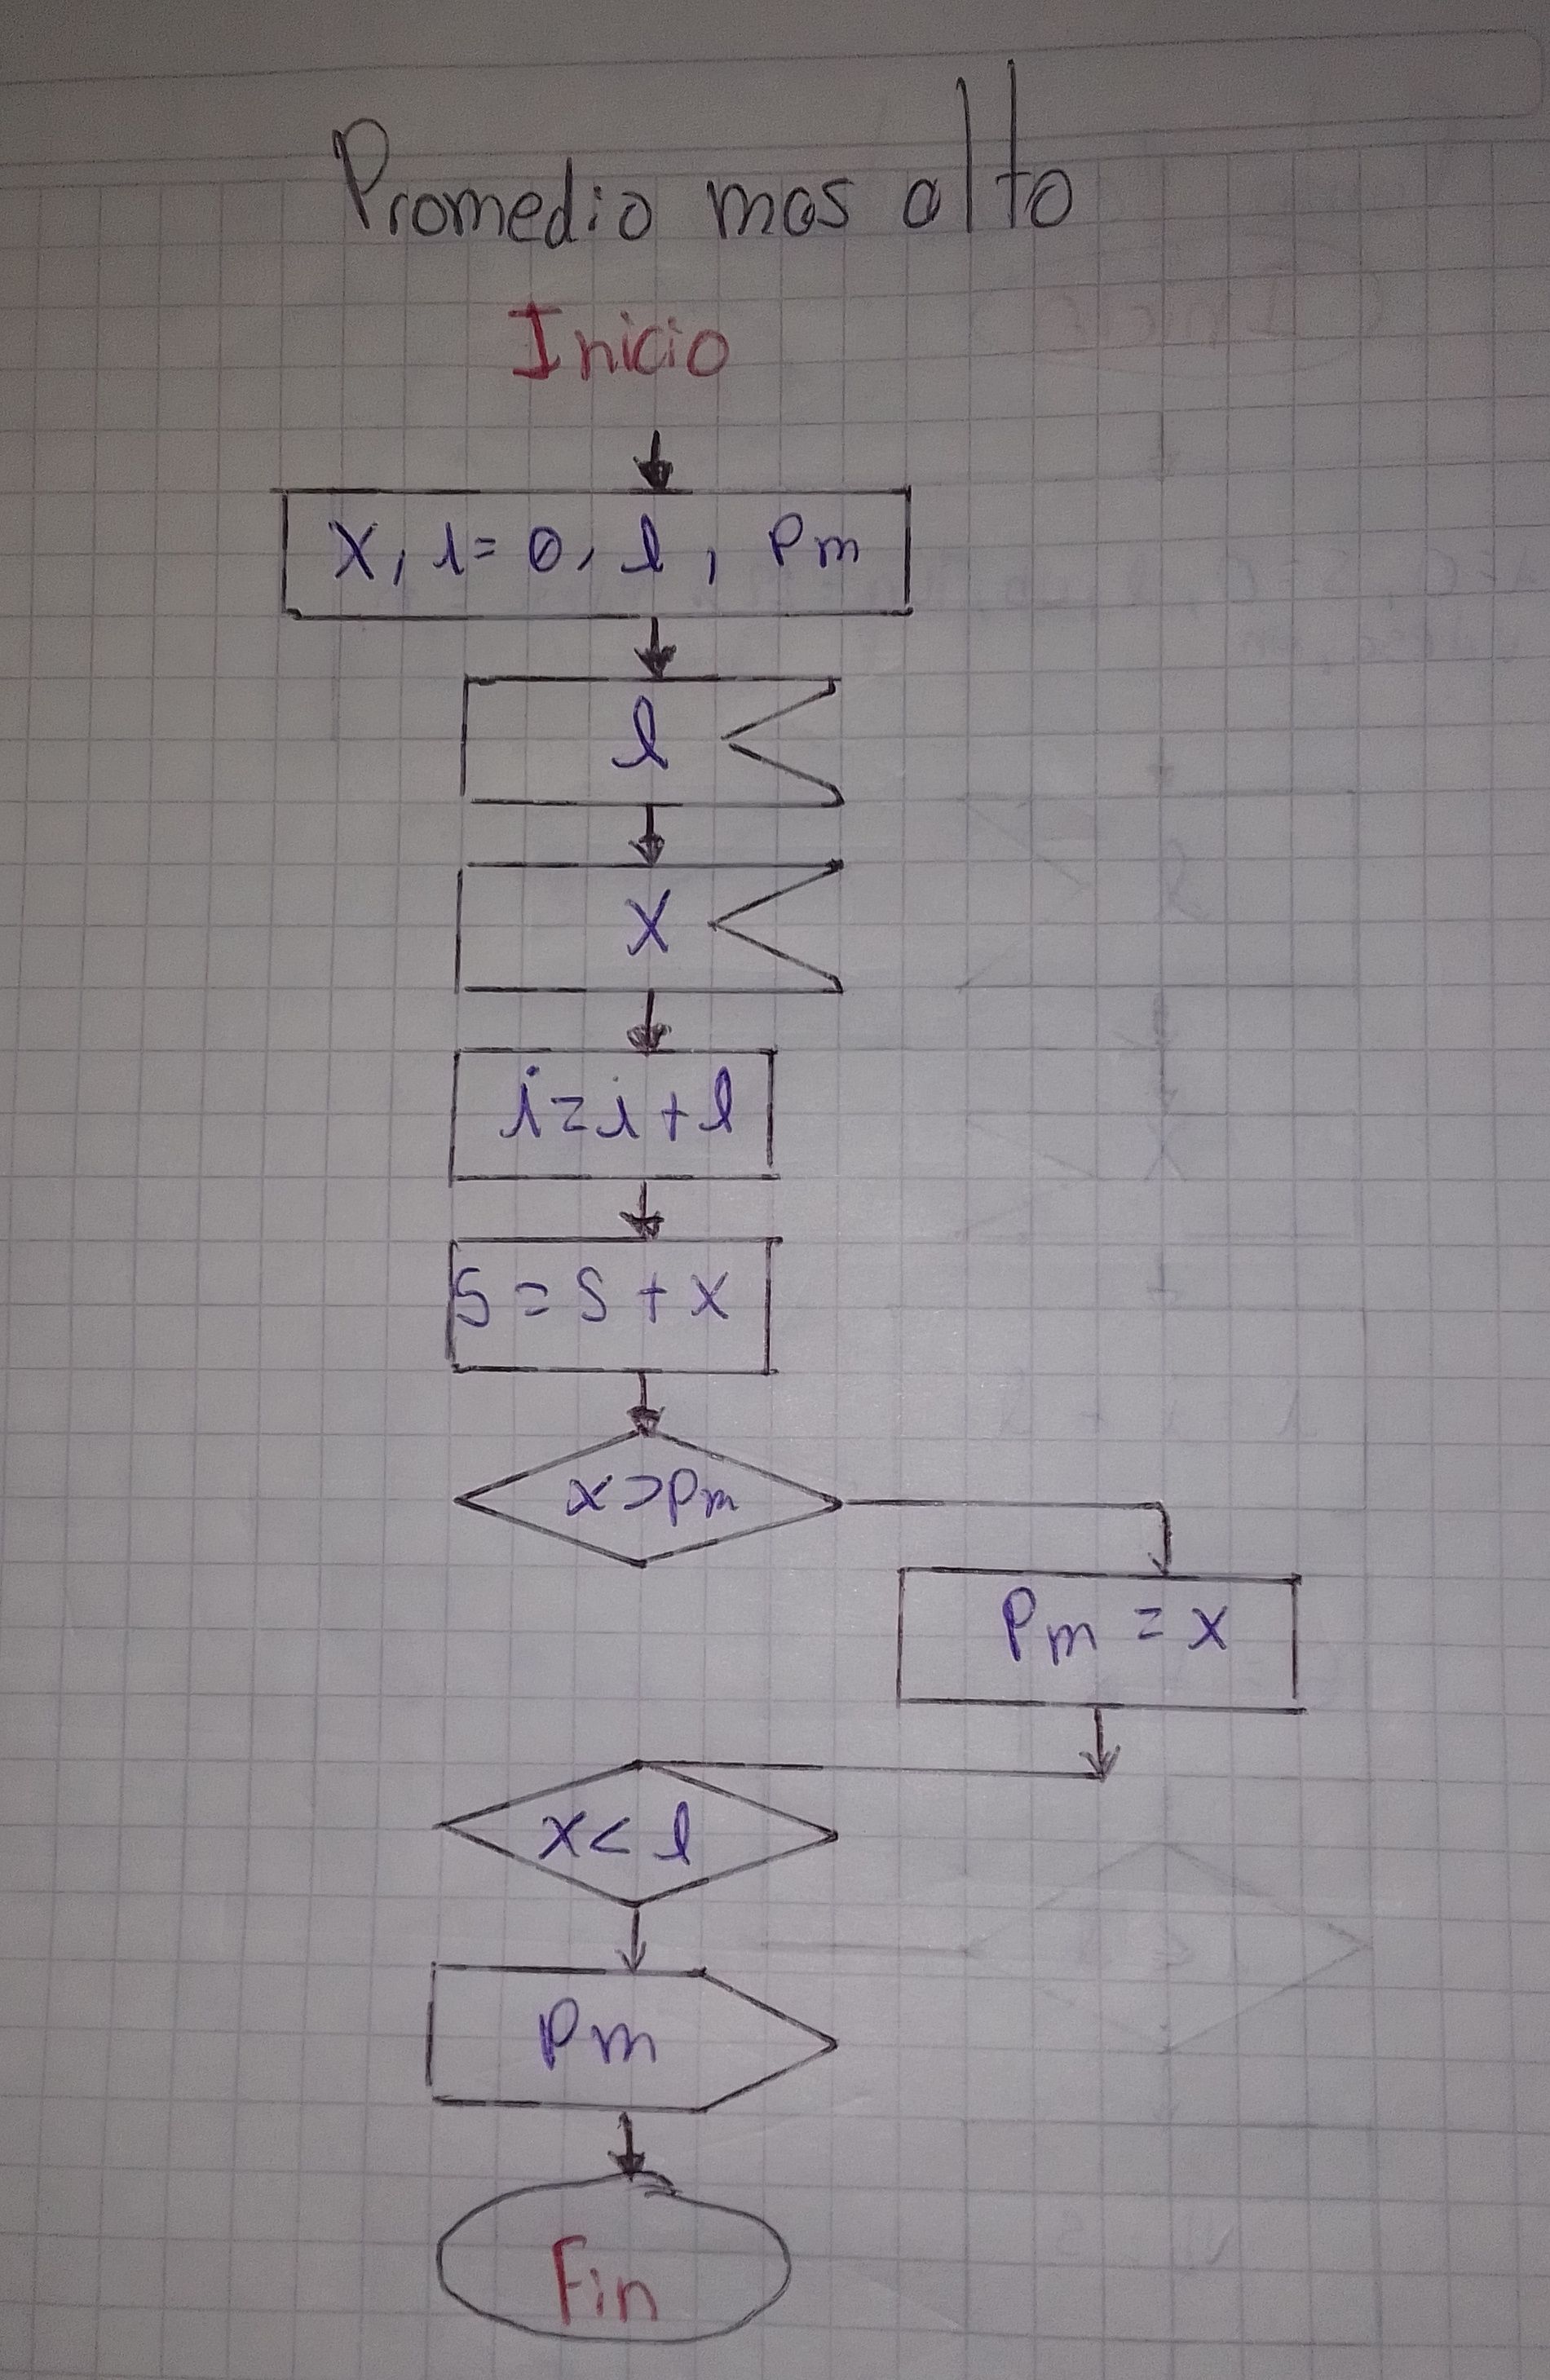 Promedio mas alto
Inicio
X, i = 0, l, Pm
l
X
i = i + l
S = S + X
x > Pm
Pm = x
x < l
Pm
Fin